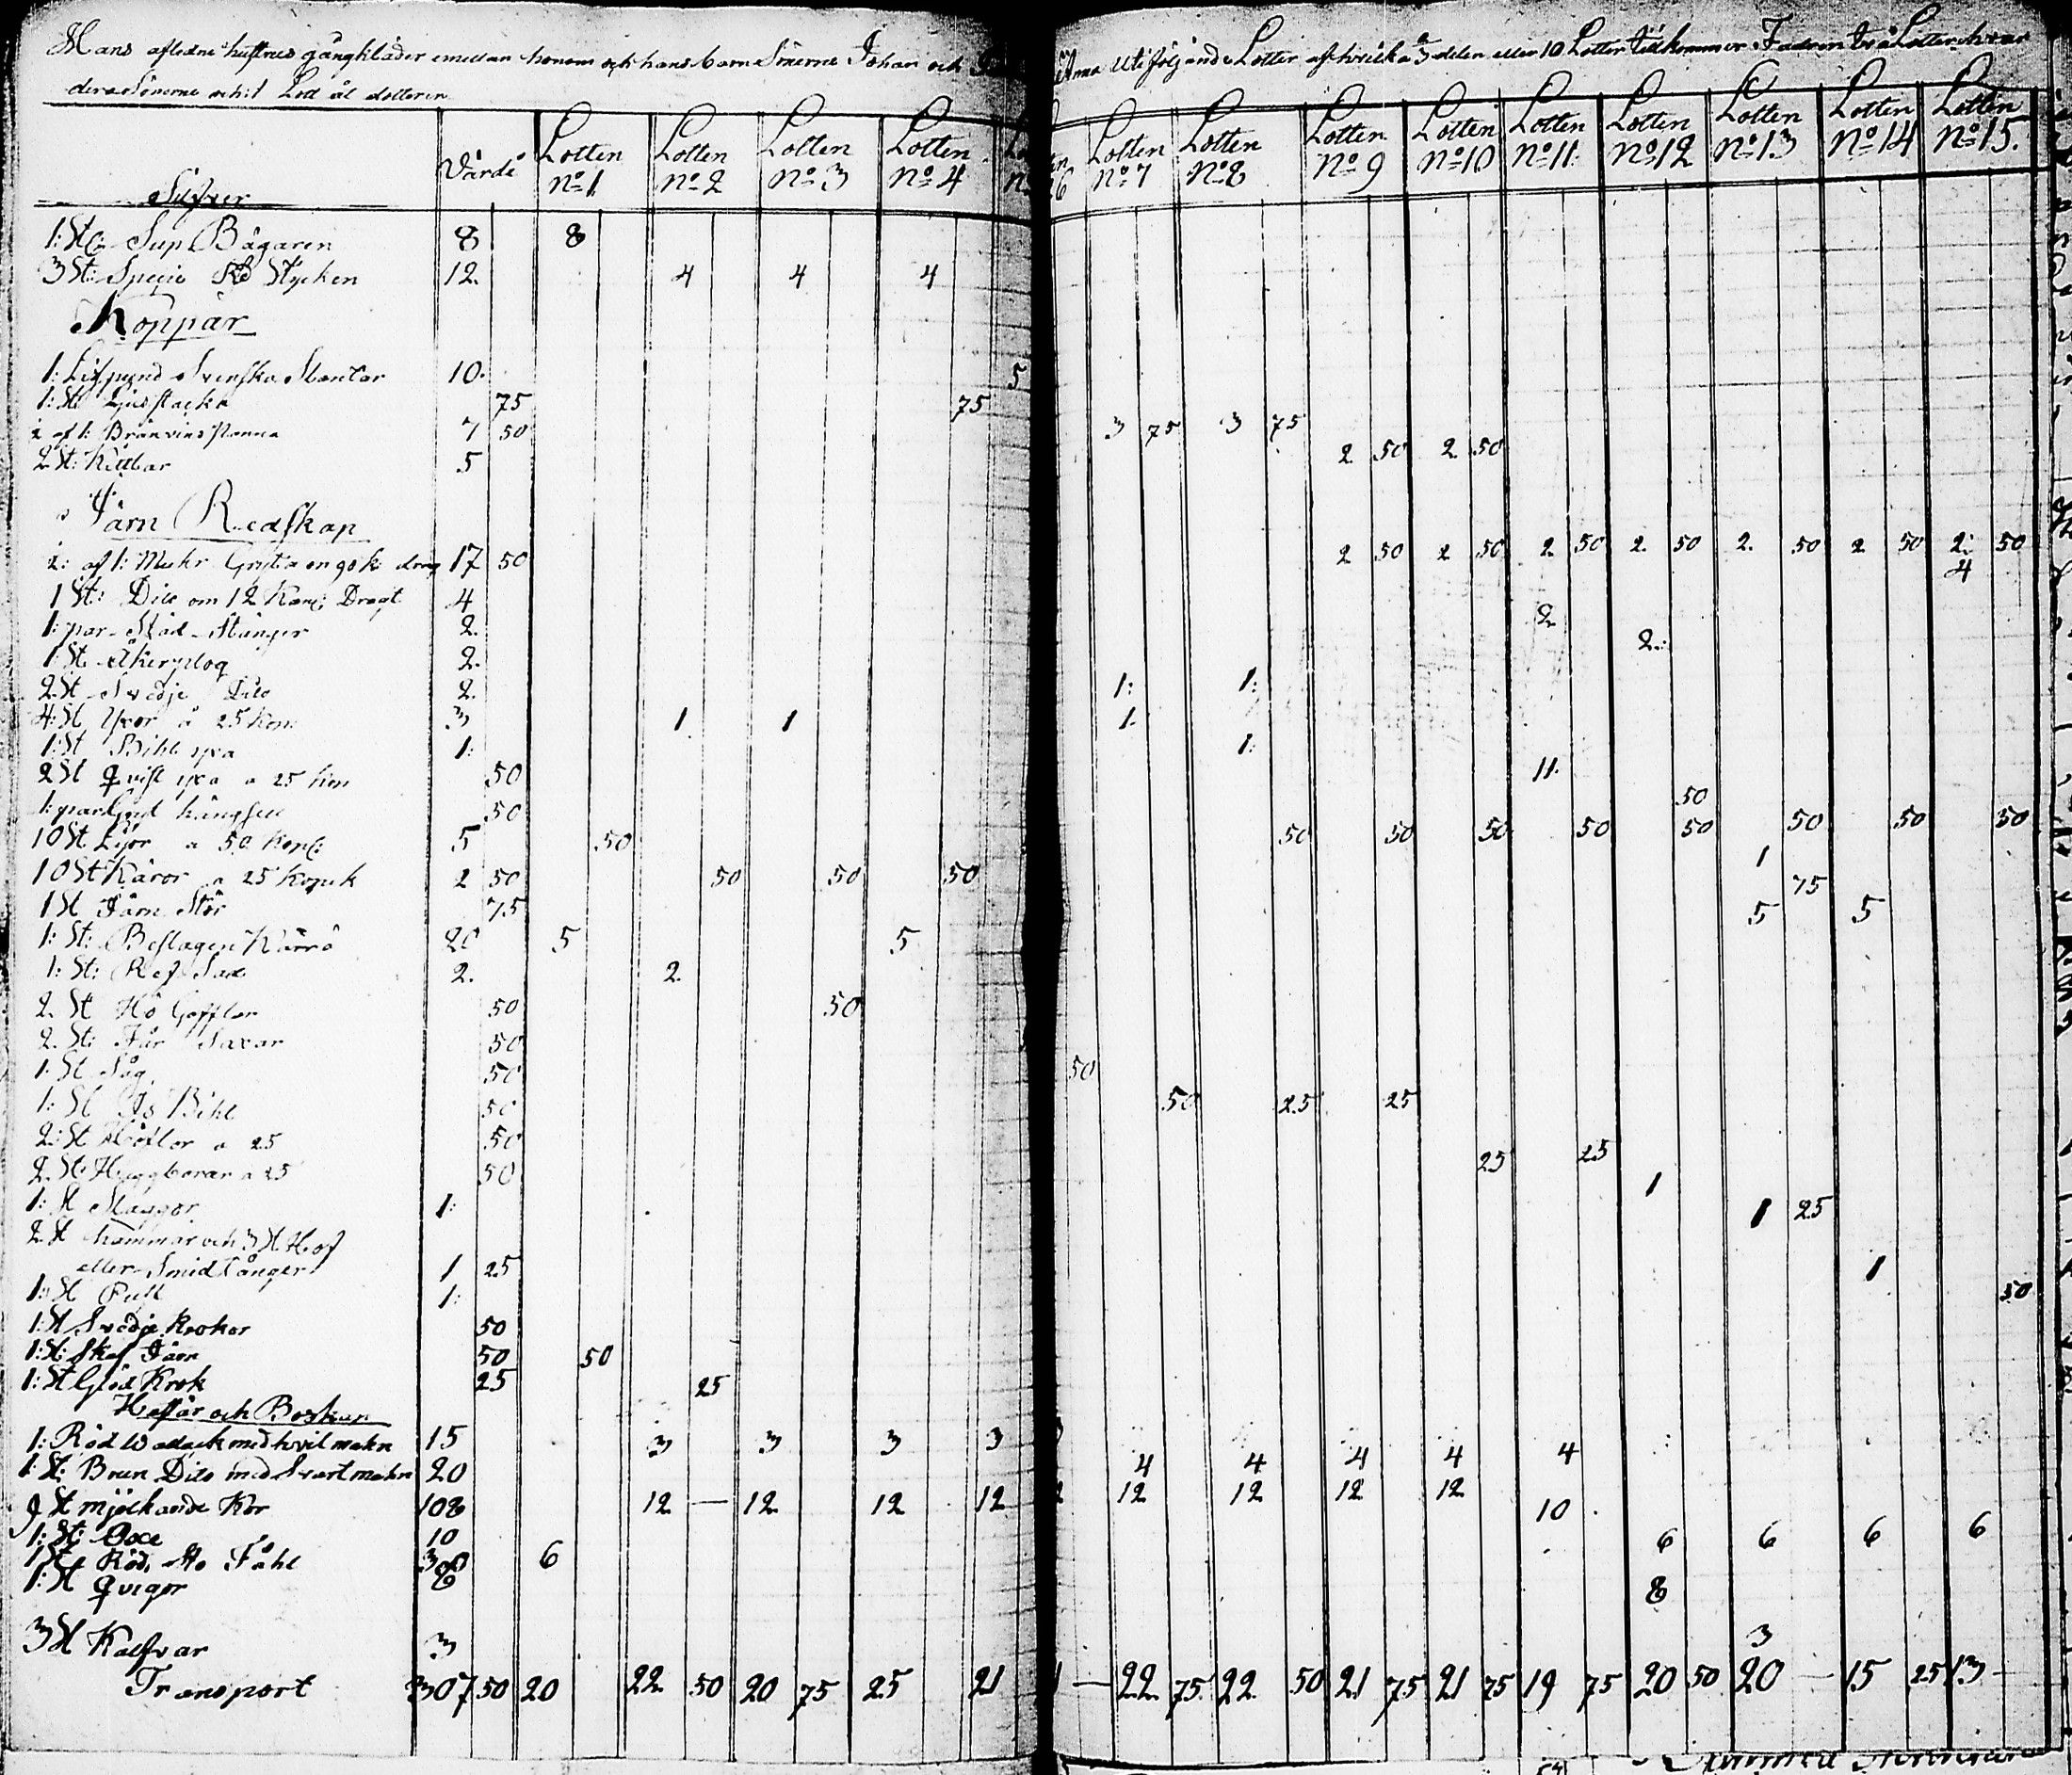 Hans afledne hustrus gångkläder emellan honom och hans barn Sönerne Johan och
Anna uti följande Lotter af hvilka delen eller 10 Lotter tillkommer Fadren två Lotter hvar
dera Sönerne och 1 Lott åt dotteren
Silfver Värde Lotten No 1 Lotten No 2 Lotten No 3 Lotten No 4 6 Lotten No 7 Lotten No 8 Lotten No 9 Lotten No 10 Lotten No 11 Lotten No 12 Lotten No 13 Lotten No 14 Lotten No 15.
1: St: Sup Bägaren 8 8
3 St: Specie Rd Stycken 12. 4 4 4
Koppar
1: Lispund Svenska Slantar 10. 5
1: St Ljusstacka 75 75
af 1: Bränvins panna 7 50 3 75 3 75
2 St: Kittlar 5 2 50 2 50
Järn Redskap
af 1: Muhr Gryta en 90 k: 17 50 2 50 2 50 2 50 2. 50 2. 50 2 50 2: 50
1 St: Dito om 12 Kan: Dragt 4 4
1: par Städ Stänger 2. 2
1 St. Åkerplog 2. 2.
2 St Svedje Dito 2. 1: 1:
4: St Yxor å 25 Kop: 3 1 1 1.
1: St Bihl yxa 1: 1:
2 St Qvist yxa a 25 Kop 50 11.
1: par Gryt hängsell 50 50
10 St Lijor a 50 Kop: 5 50 50 50 50 50 50 50 50 50
10 St Käror a 25 Kopek 2 50 50 50 50 1
1 St Järn Stör 75 75
1: St: Beslagen Kärra 20 5 5 5 5
1: St: Ref Sax 2. 2.
2. St Hö Gafflar 50 50
2. St: Får Saxar 50
1: St Såg 50 50
1: St Is Bihl 50 50 25 25
2: St Höflor a 25 50
2. St: Huggborar a 25 50 25 25
1: St Släggor 1: 1
2 St hammar och 3 St Hof
eller Smid tänger 1 25 1 25
1: St Pust 1: 1
1: St Svedje Krokor 50 50
1: St: Skaf Järn 50 50
1: St Glöd Krok 25 25
Hästar och Boskap
1: Röd Wallack med hvit mahn 15 3 3 3 3
1 St: Brun Dito med Svart mahn 20 4 4 4 4 4
9 St mjölkande Kor 108 12 — 12 12 12 12 12 12 12
1: St: Oxe 10 10
1 St Röd Sto Fåhl 30 6 6 6 6 6
1: St Qvigor 8 8
3 St Kalfvar 3 3
Transport 307 50 20 22 50 20 75 25 21 — 22 75 22 50 21 75 21 75 19 75 20 50 20 — 15 25 13 —